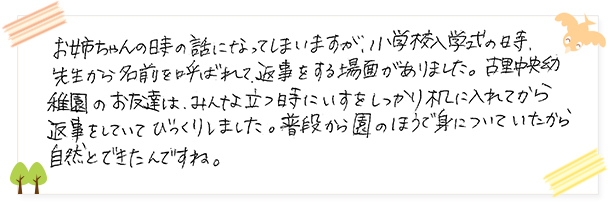 お姉ちゃんの時の話になってしまいますが、小学校入学式の時、
先生から名前を呼ばれて、返事をする場面がありました。古里中央幼
稚園のお友達は、みんな立つ時にいすをしっかり机に入れてから
返事をしていてびっくりしました。普段から園のほうで身についていたから
自然とできたんですね。